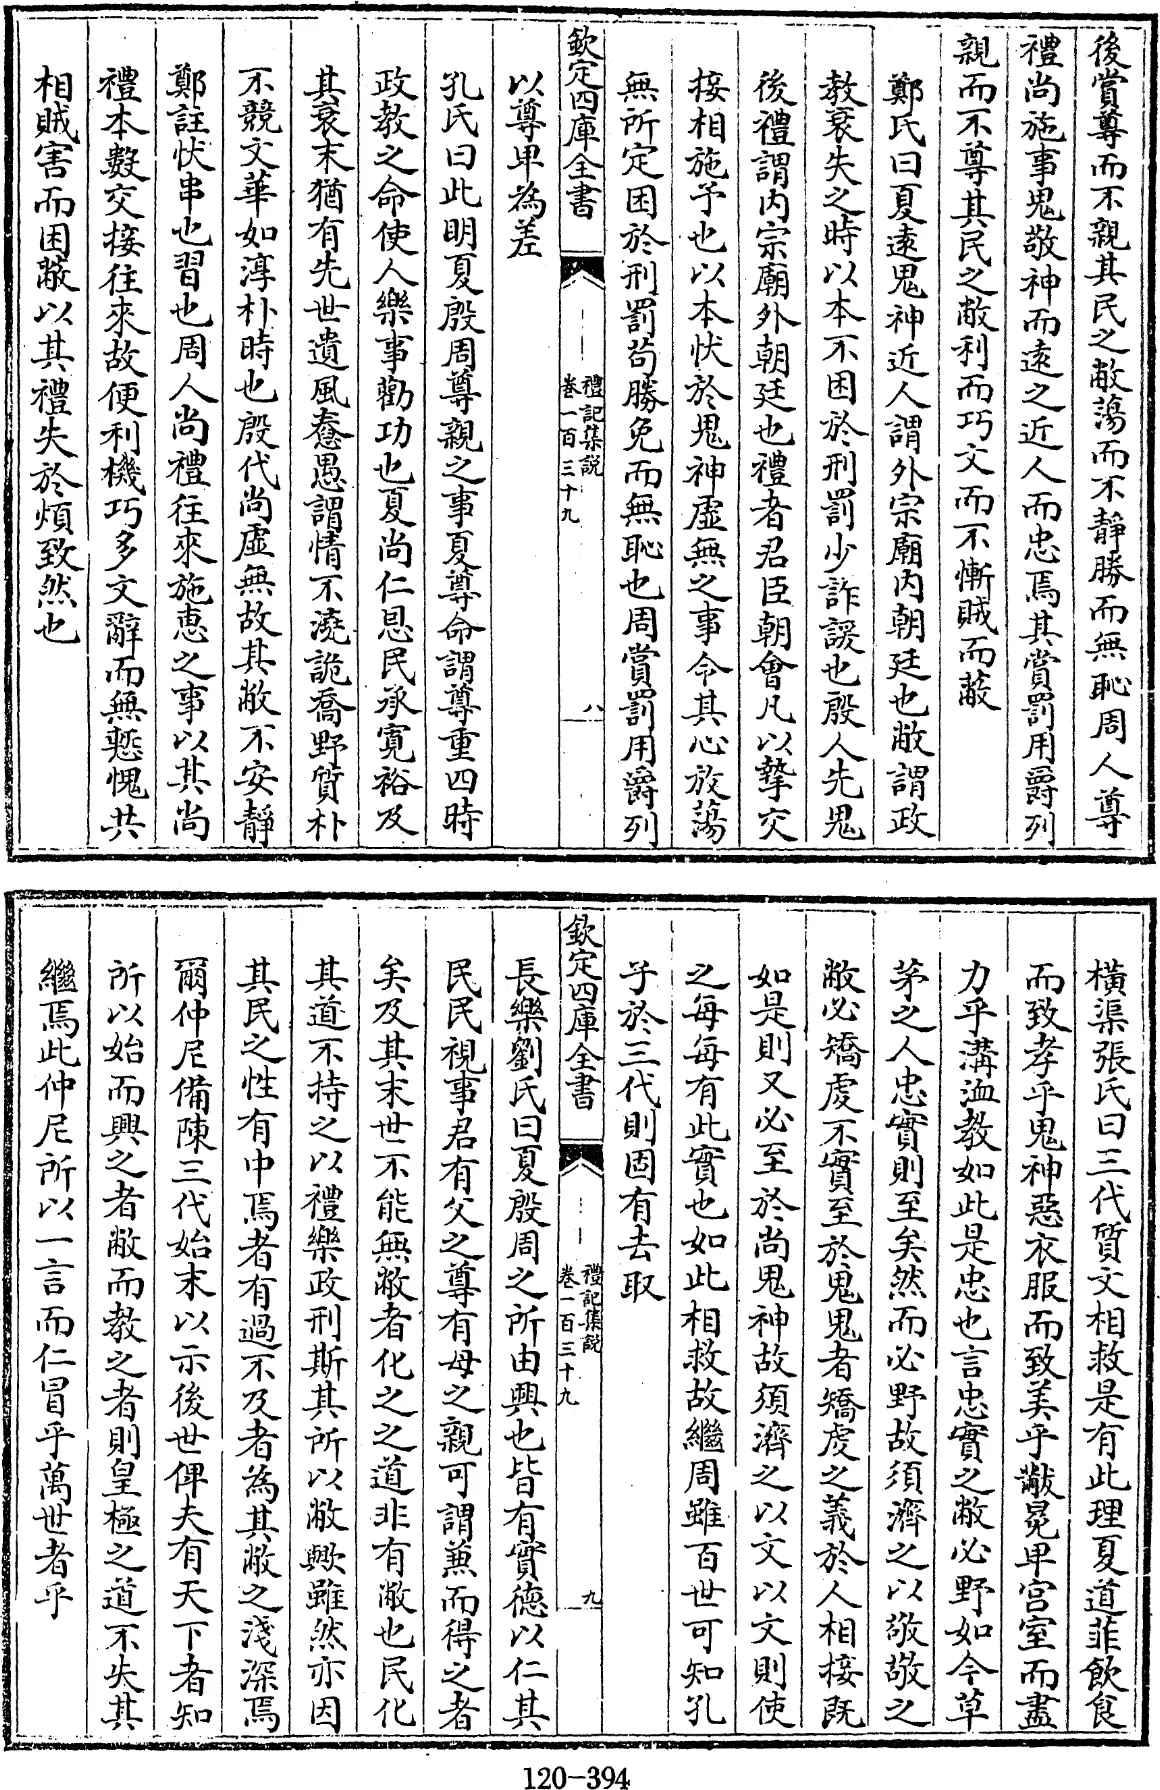 後賞尊而不親其民之敝蕩而不靜勝而無恥周人尊
禮尚施事鬼敬神而逺之近人而忠焉其賞罰用爵列
親而不尊其民之敝利而巧文而不慚賊而蔽
鄭氏曰夏逺鬼神近人謂外宗廟内朝廷也敝謂政
教衰失之時以本不困於刑罰少詐諼也殷人先鬼
後禮謂内宗廟外朝廷也禮者君臣朝會凡以摯交
接相施予也以本忕於鬼神虛無之事令其心放蕩
無所定困於刑罰茍勝免而無恥也周賞罰用爵列
欽定四庫全書
禮記集説
卷一百三十九
八
以尊卑為差
孔氏曰此明夏殷周尊親之事夏尊命謂尊重四時
政教之命使人樂事勸功也夏尚仁恩民承寛裕及
其衰末猶有先世遺風惷愚謂情不澆詭喬野質朴
不競文華如淳朴時也殷代尚虛無故其敝不安靜
鄭註忕串也習也周人尚禮往來施惠之事以其尚
禮本數交接往來故便利機巧多文辭而無慙愧共
相賊害而困敝以其禮失於煩致然也
橫渠張氏曰三代質文相救是有此理夏道菲飲食
而致孝乎鬼神惡衣服而致美乎黻冕卑宫室而盡
力乎溝洫教如此是忠也言忠實之敝必野如今草
茅之人忠實則至矣然而必野故須濟之以敬敬之
敝必矯虔不實至於鬼鬼者矯虔之義於人相接既
如是則又必至於尚鬼神故須濟之以文以文則使
之每每有此實也如此相救故繼周雖百世可知孔
子於三代則固有去取
欽定四庫全書
禮記集說
卷一百三十九
九
長樂劉氏曰夏殷周之所由興也皆有實德以仁其
民民視事君有父之尊有母之親可謂兼而得之者
矣及其末世不能無敝者化之之道非有敝也民化
其道不持之以禮樂政刑斯其所以敝歟雖然亦因
其民之性有中焉者有過不及者為其敝之淺深焉
爾仲尼備陳三代始末以示後世俾夫有天下者知
所以始而興之者敝而教之者則皇極之道不失其
繼焉此仲尼所以一言而仁冒乎萬世者乎
120-394